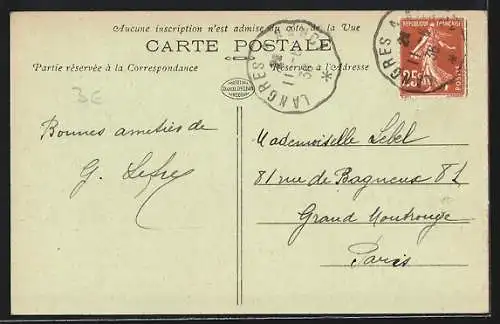 Aucune inscription n'est admise du côté de la Vue
CARTE POSTALE
Partie réservée à la Correspondance
Réservée à l'Adresse
LANGRES A
LANGRES A
REPUBLIQUE FRANÇAISE
25c
POSTES
3E
Bonnes amitiés de
G.
Mademoiselle Lebel
81 rue de Bagneux 81
Grand Montrouge
Paris